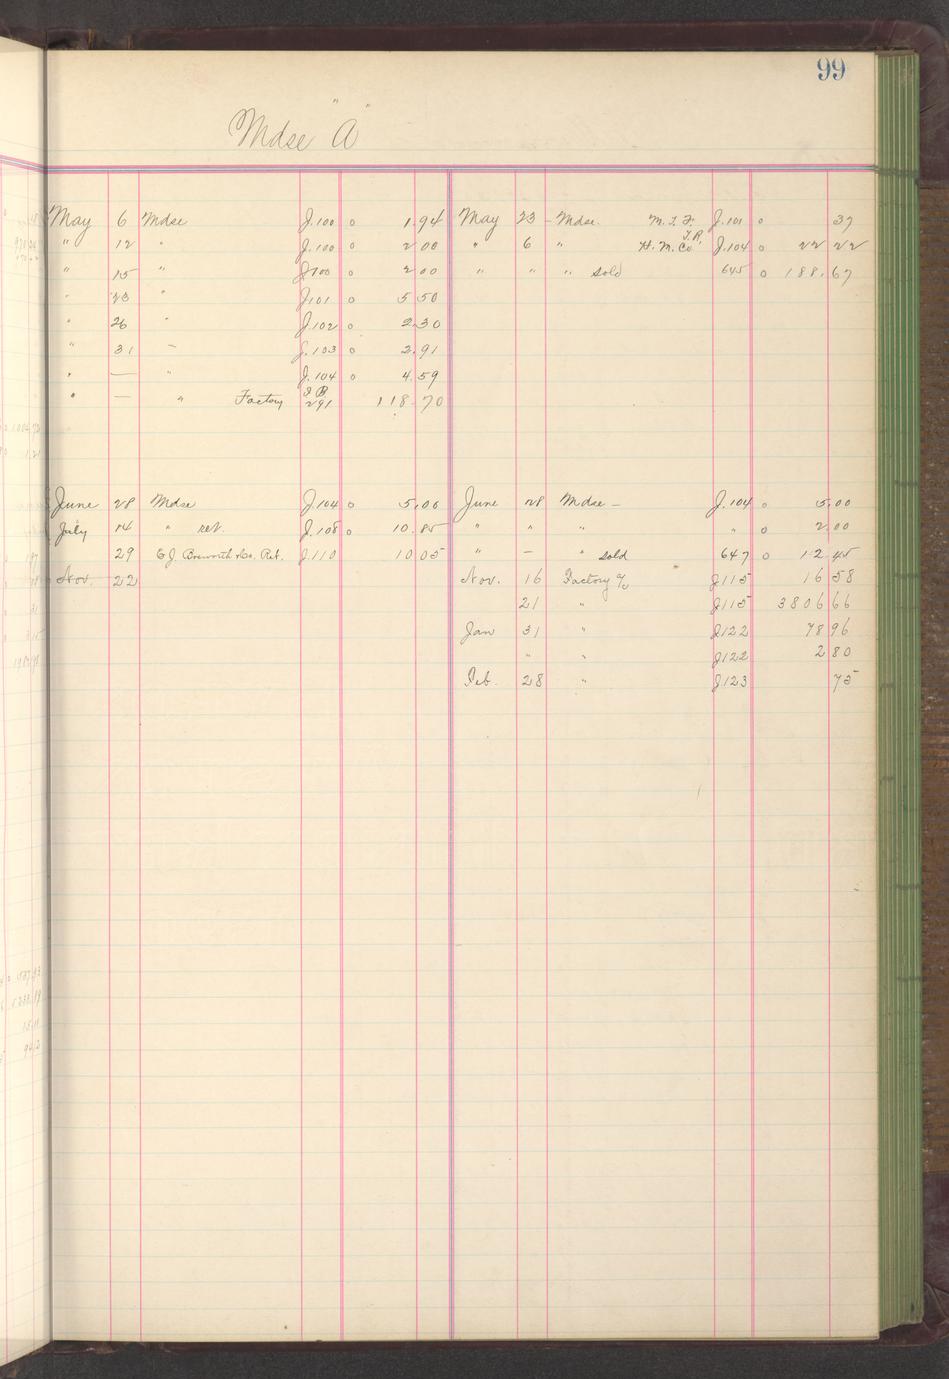 99
Mdse "A"
May 6 Mdse J.100 o 1.94 May 23 Mdse. M.I.F. J.101 o 37
" 12 " J.100 o 2 00 " 6 " H.M.Co J.104 o 22 22
" 15 " J100 o 2 00 " " " sold 645 o 188.67
" 23 " J101 o 5 50
" 26 " J.102 o 2.30
" 31 " J.103 o 2.91
" — " J.104 o 4.59
" — " Factory 291 118.70
June 28 Mdse J.104 o 5.00 June 28 Mdse — J.104 o 5.00
July 14 " ret. J.108 o 10.85 " " " " o 2.00
29 Co. Ret. J.110 10 05 " — " sold 647 o 12 45
Nov. 22 Nov. 16 Factory a/c J115 16 58
21 " J115 3806 66
Jan 31 " J122 78 96
" " J122 2 80
Feb. 28 " J.123 75